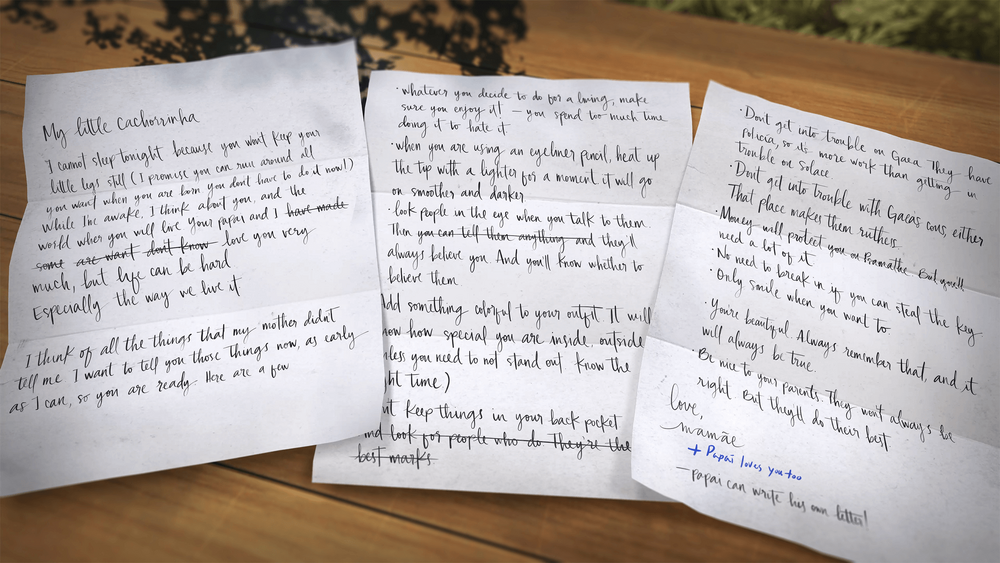 My little Cachorrinha
I cannot sleep tonight because you won't keep your
little legs still (I promise you can run around all
you want when you are born you don't have to do it now!)
While Im awake, I think about you, and the
world where you will live Your papai and I have made
some are want don't know love you very
much, but life can be hard
Especially the way we live it
I think of all the things that my mother didn't
tell me I want to tell you those things now, as early
as I can, so you are ready Here are a few
• whatever you decide to do for a living, make
sure you enjoy it! — you spend too much time
doing it to hate it
• when you are using an eyeliner pencil, heat up
the tip with a lighter for a moment it will go
on smoother and darker
• look people in the eye when you talk to them.
Then you can tell them anything and they'll
always believe you. And you'll know whether to
believe them
Add something colorful to your outfit It will
how special you are inside, outside
you need to not stand out. Know the
time)
keep things in your back pocket
And look for people who do They're the
best marks
• Dont get into trouble on Gaea They have
policia, so its more work than getting in
trouble on Solace
• Dont get into trouble with Gaeas cous, either
That place makes them ruthless
• Money will protect you on Pramathe But you'll
need a lot of it
• No need to break in if you can steal the key
• Only smile when you want to
• Youre beautiful. Always remember that, and it
will always be true.
• Be nice to your parents. They won't always be
right But they'll do their best
love,
mamãe
+ Papai loves you too
— papai can write his own letter!